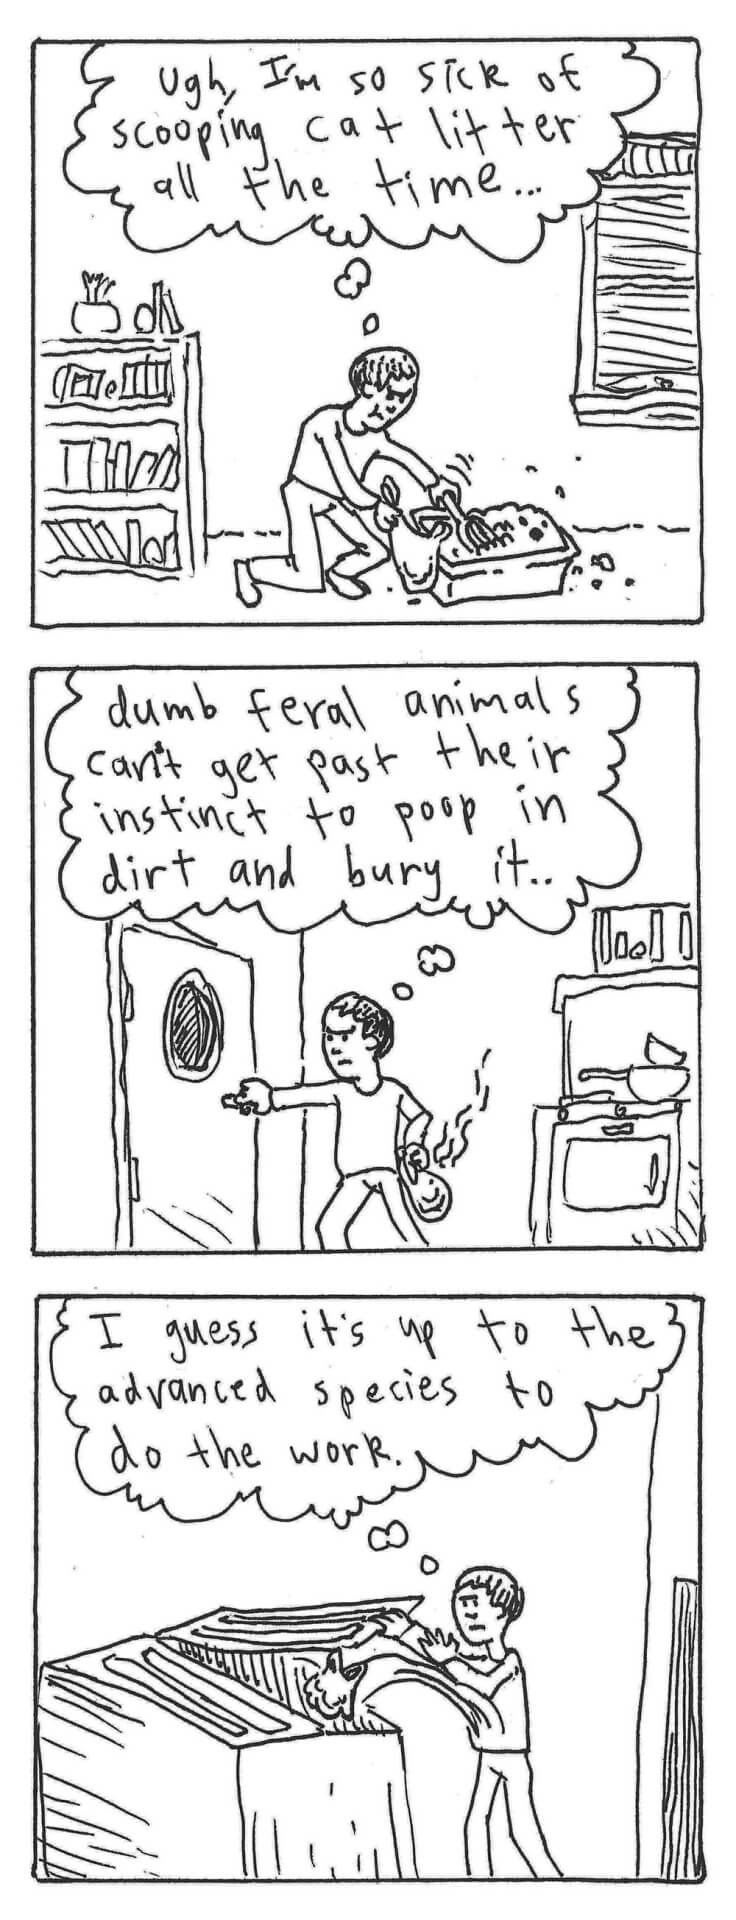 Ugh, I'm so sick of
scooping cat litter
all the time...
dumb feral animals
can't get past their
instinct to poop in
dirt and bury it..
I guess it's up to the
advanced species to
do the work.